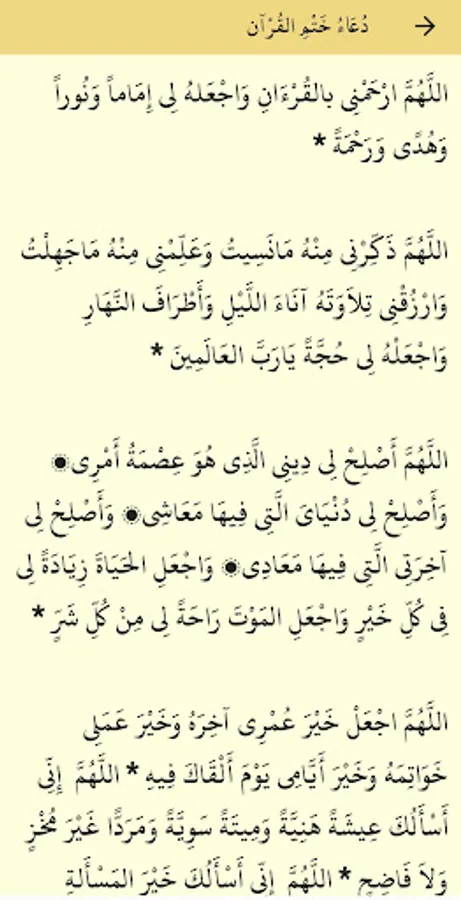 دُعَاءُ خَتْمِ القُرْآن
اللَّهُمَّ ارْحَمْنِى بالقُرْءَانِ وَاجْعَلهُ لِى إِمَاماً وَنُوراً
وَهُدًى وَرَحْمَةً *
اللَّهُمَّ ذَكِّرْنِى مِنْهُ مَانَسِيتُ وَعَلِّمْنِى مِنْهُ مَاجَهِلْتُ
وَارْزُقْنِى تِلاَوَتَهُ آنَاءَ اللَّيْلِ وَأَطْرَافَ النَّهَارِ
وَاجْعَلْهُ لِى حُجَّةً يَارَبَّ العَالَمِينَ *
اللَّهُمَّ أَصْلِحْ لِى دِينِى الَّذِى هُوَ عِصْمَةُ أَمْرِى۞
وَأَصْلِحْ لِى دُنْيَاىَ الَّتِى فِيهَا مَعَاشِى۞ وَأَصْلِحْ لِى
آخِرَتِى الَّتِى فِيهَا مَعَادِى۞ وَاجْعَلِ الحَيَاةَ زِيَادَةً لِى
فِى كُلِّ خَيْرٍ وَاجْعَلِ المَوْتَ رَاحَةً لِى مِنْ كُلِّ شَرٍّ *
اللَّهُمَّ اجْعَلْ خَيْرَ عُمْرِى آخِرَهُ وَخَيْرَ عَمَلِى
خَوَاتِمَهُ وَخَيْرَ أَيَّامِى يَوْمَ أَلْقَاكَ فِيهِ * اللَّهُمَّ إِنِّى
أَسْأَلُكَ عِيشَةً هَنِيَّةً وَمِيتَةً سَوِيَّةً وَمَرَدًّا غَيْرَ مُخْزٍ
وَلاَ فَاضِحٍ * اللَّهُمَّ إِنِّى أَسْأَلُكَ خَيْرَ المَسْأَلةِ